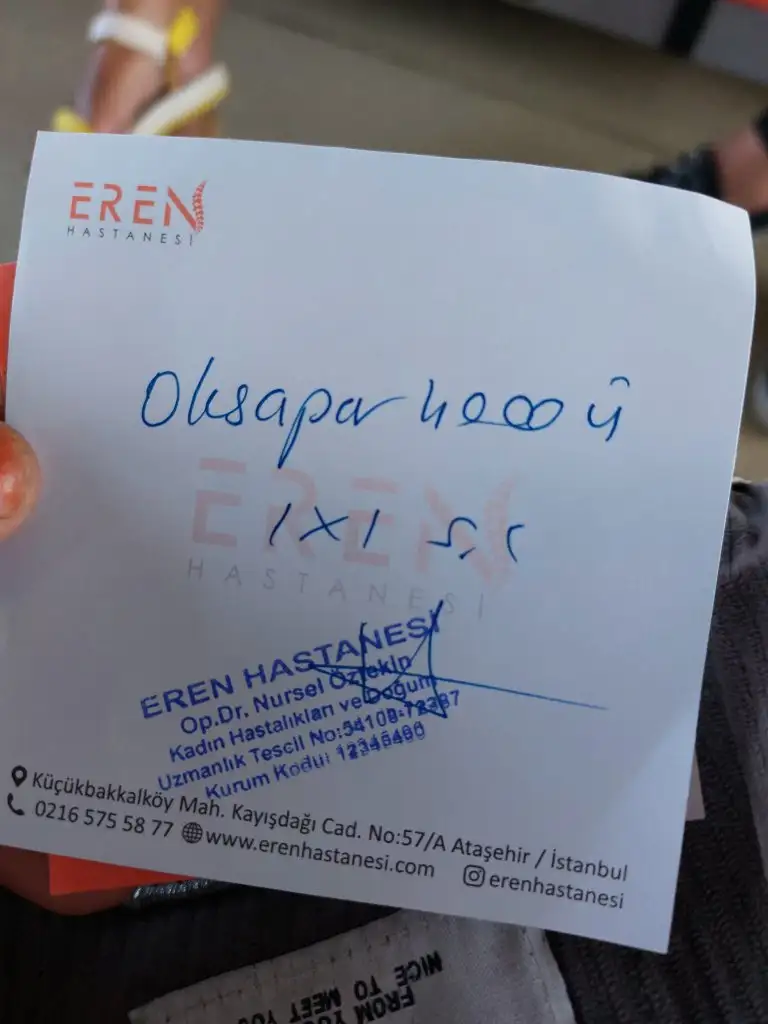 EREN
HASTANESİ
Oksapar 4000 ü
1x1 s.c
EREN
HASTANESİ
EREN HASTANESİ
Op.Dr. Nursel Öztekin
Kadın Hastalıkları ve Doğum
Uzmanlık Tescil No:54108-
Kurum Kodu:
Küçükbakkalköy Mah. Kayışdağı Cad. No:57/A Ataşehir / İstanbul
0216 575 58 77 www.erenhastanesi.com erenhastanesi
NICE TO MEET YOU
FROM YOU